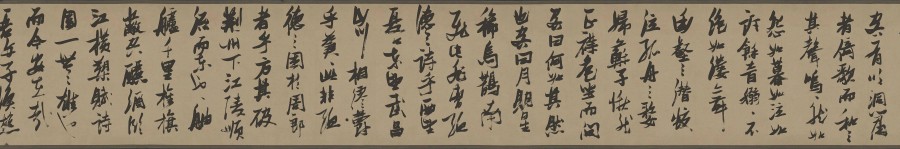 客有吹洞簫
者倚歌而和之
其聲嗚嗚然如
怨如慕如泣如
訴餘音嫋嫋不
絕如縷舞
幽壑之潛蛟
泣孤舟之嫠
婦蘇子愀然
正襟危坐而問
客曰何為其然
也客曰月明星
稀烏鵲南
飛此非曹孟
德之詩乎西望
夏口東望武昌
山川相繆鬱
乎蒼蒼此非孟
德之困於周郎
者乎方其破
荊州下江陵順
流而東也舳
艫千里旌旗
蔽空釃酒臨
江橫槊賦詩
固一世之雄也
而今安在哉
吾與子漁樵